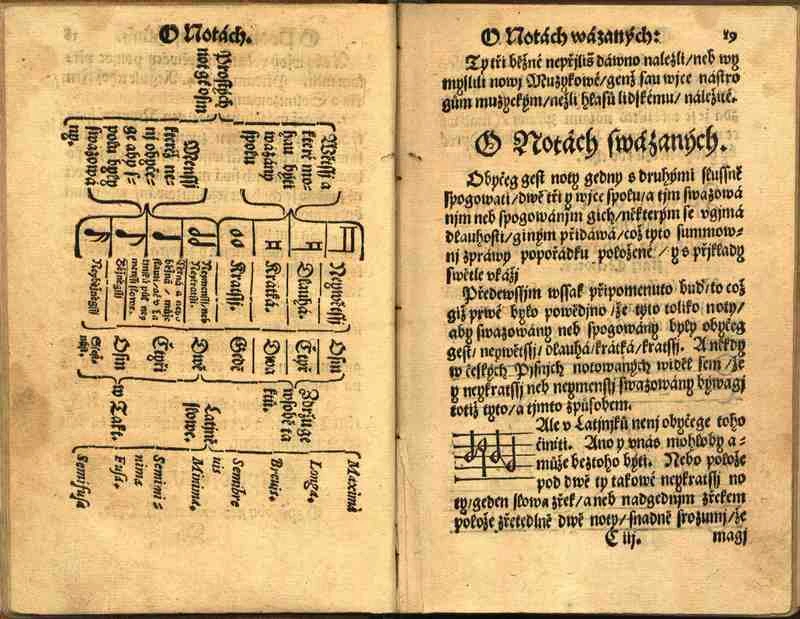 O Notách.
Prostých
not gest osm
Wětssj a
které mo-
hau býti
wázány
spolu
Menssj
kteréž ne-
nj obyče-
ge aby s-
polu byly
swazowá
ny.
Neywětssj
Dlauhá.
Krátká.
Kratssj.
Neymenssj neb
Neykratssj.
Běžněgssj
Neyběžněgssj
Osm
Čtyř
Dwa
Gedē
Dwě
Čtyři
Osm
Zdržuge
w sobě ta
ktů.
w Takt.
Latjně
slowe.
Maxima
Longa.
Brevis.
Semibre
vis
Minima.
Semimi-
nima
Fusa.
Semifusa
O Notách wázaných: 19
Ty tři běžné nepřjliš dáwno nalezli/neb wy
myslili nowj Muzykowé/genž sau wjce nástro
gům muzyckým/nežli hlasu lidskému/náležité.
O Notách swázaných.
Obyčeg gest noty gedny s druhými slussně
spogowati/dwě tři y wjce spolu/a tjm swazowá
njm neb spogowánjm gich/některým se vgjmá
dlauhosti/giným přidáwá/což tyto summow-
nj zpráwy popořádku položené/y s přjklady
swětle vkážj
Předewssjm wssak připomenuto bud/to což
giž prwé bylo powědjno/že tyto toliko noty/
aby swazowány neb spogowány byly obyčeg
gest/neywětssj/dlauhá/krátká/kratssj. A někdy
w českých Pjsnjch notowaných widěl sem/že
y neykratssj neb neymenssj swazowány býwagj
totiž tyto/a tjmto způsobem.
Ale v Latjnjků nenj obyčege toho
činiti. Ano y vnás mohlo by a-
může beztoho býti. Nebo polože
pod dwě ty takowé neykratssj no
ty/geden slowa zřek/a neb nad gednjm zřekem
polože zřetedlně dwě noty/snadně srozumj/že
C iij. magj